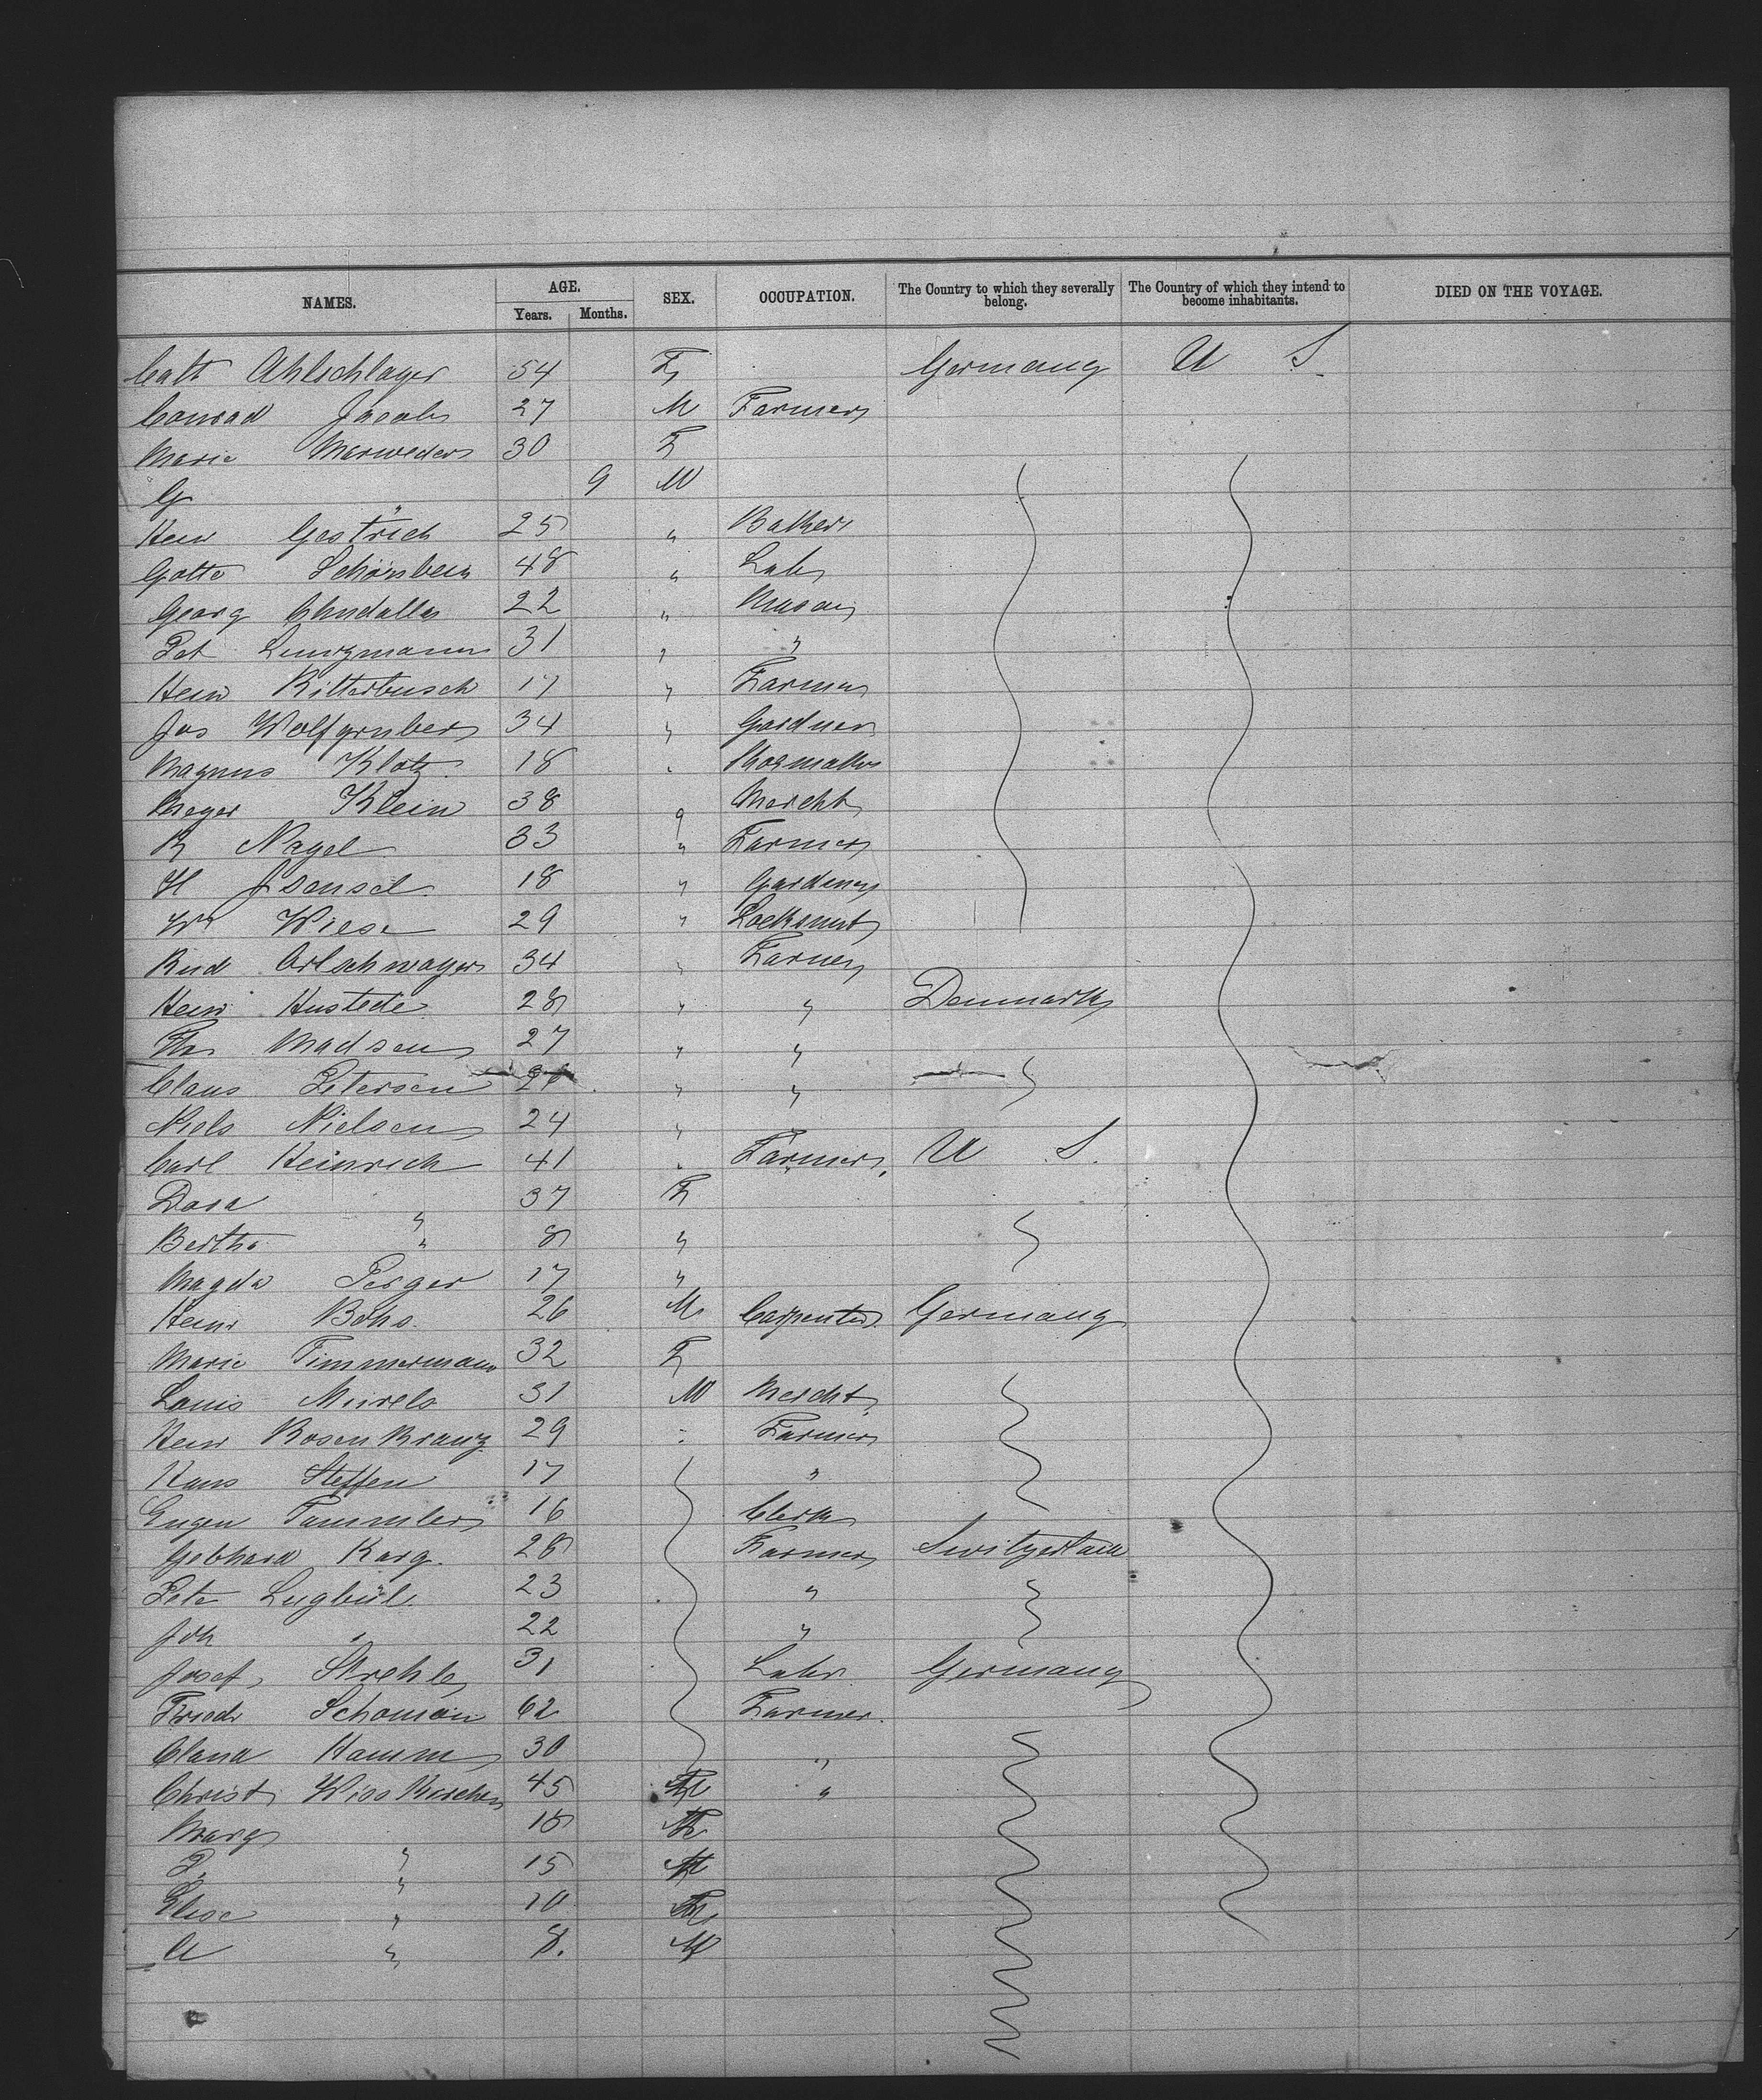 NAMES. AGE. Years. Months. SEX. OCCUPATION. The Country to which they severally belong. The Country of which they intend to become inhabitants. DIED ON THE VOYAGE.
Cath Ahlschlager 54 F Germany U S
Conrad Jacobs 27 M Farmer
Marie Marweder 30 F
G " 9 M
Heinr Gastrich 25 " Baker
Gotte Schönbein 48 " Labr
Georg 22 " Mason
Pet 31 " "
Heinr Ritterbusch 17 " Farmer
Jos Wolfgruber 34 " Gardner
Magnus Klotz 18 " Shoemaker
Meyer Klein 38 " Mercht
R Nagel 33 " Farmer
H Jsensel 18 " Gardener
Wm Wiese 29 " Locksmit
Rud Artschwager 34 " Farmer
Heinr Hustede 28 " " Denmark
Ths Madsen 27 " "
Claus Petersen " "
Niels Nielsen 24 "
Carl Heinrich 41 " Farmer U S.
Dora " 37 F
Bertha " 8 "
Magda Perger 17 "
Heinr Bohs 26 M Carpenter Germany
Marie Timmermann 32 F
Louis Mirels 31 M Mercht
Heinr Rosenkranz 29 " Farmer
Hans Steffen 17 "
Eugen Tammler 16 Clerk
Gebhard Karg. 28 Farmer Switzerland
Pete Lugbül 23 "
Joh " 22 "
Josef Strehle 31 Labr Germany
Friedr Schomann 62 Farmer
Claus Hamm 30 "
Christ Wisskirchen 45 "
Marg " 18
P. " 15
Elise " 10
A " 8. M